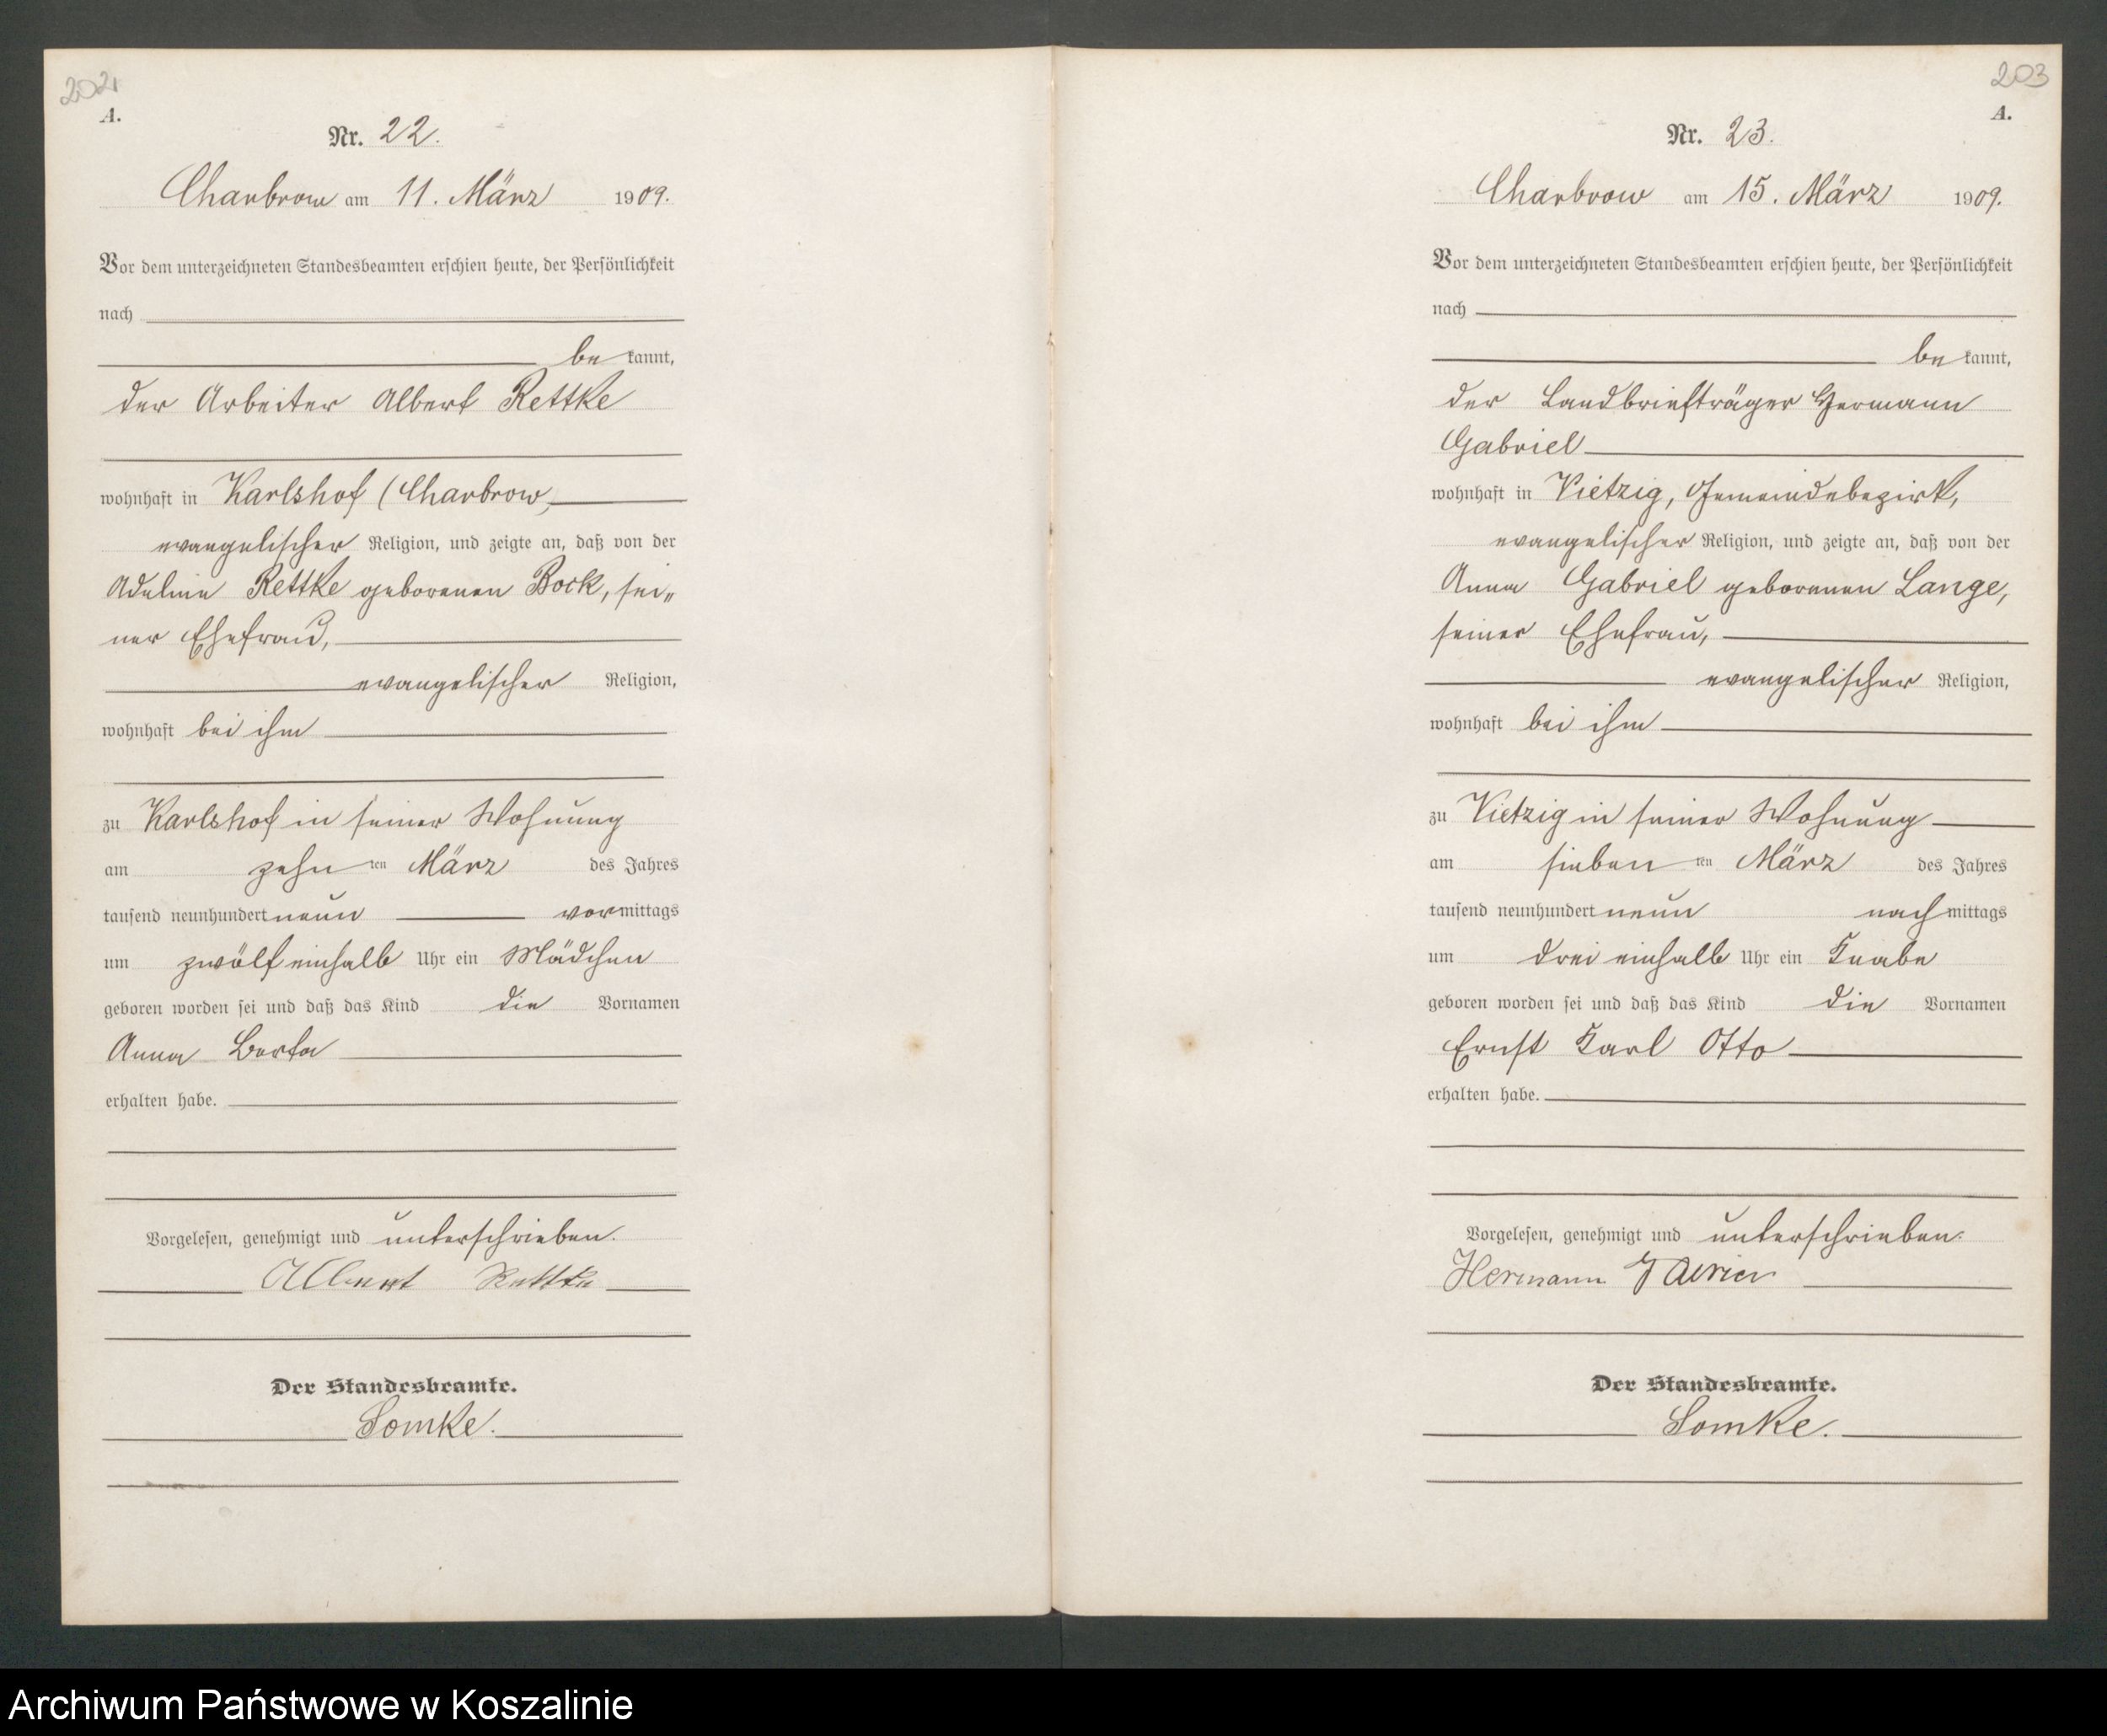 202
A.
Nr. 22.
Charbrow am 11. März 1909.
Vor dem unterzeichneten Standesbeamten erschien heute, der Persönlichkeit
nach
be kannt,
der Arbeiter Albert Rettke
wohnhaft in Karlshof (Charbrow)
evangelischer Religion, und zeigte an, daß von der
Adeline Rettke geborenen Bock, sei„
ner Ehefrau,
evangelischer Religion,
wohnhaft bei ihm
zu Karlshof in seiner Wohnung
am zehn ten März des Jahres
tausend neunhundert neun vormittags
um zwölf einhalb Uhr ein Mädchen
geboren worden sei und daß das Kind die Vornamen
Anna Berta
erhalten habe.
Vorgelesen, genehmigt und unterschrieben.
Albert Rettke
Der Standesbeamte.
Lomke.
203
A.
Nr. 23.
Charbrow am 15. März 1909.
Vor dem unterzeichneten Standesbeamten erschien heute, der Persönlichkeit
nach
be kannt,
der Landbriefträger Hermann
Gabriel
wohnhaft in Vietzig, Gemeindebezirk,
evangelischer Religion, und zeigte an, daß von der
Anna Gabriel geborenen Lange,
seiner Ehefrau,
evangelischer Religion,
wohnhaft bei ihm
zu Vietzig in seiner Wohnung
am sieben ten März des Jahres
tausend neunhundert neun nachmittags
um drei einhalb Uhr ein Knabe
geboren worden sei und daß das Kind die Vornamen
Ernst Karl Otto
erhalten habe.
Vorgelesen, genehmigt und unterschrieben.
Hermann
Der Standesbeamte.
Lomke.
Archiwum Państwowe w Koszalinie